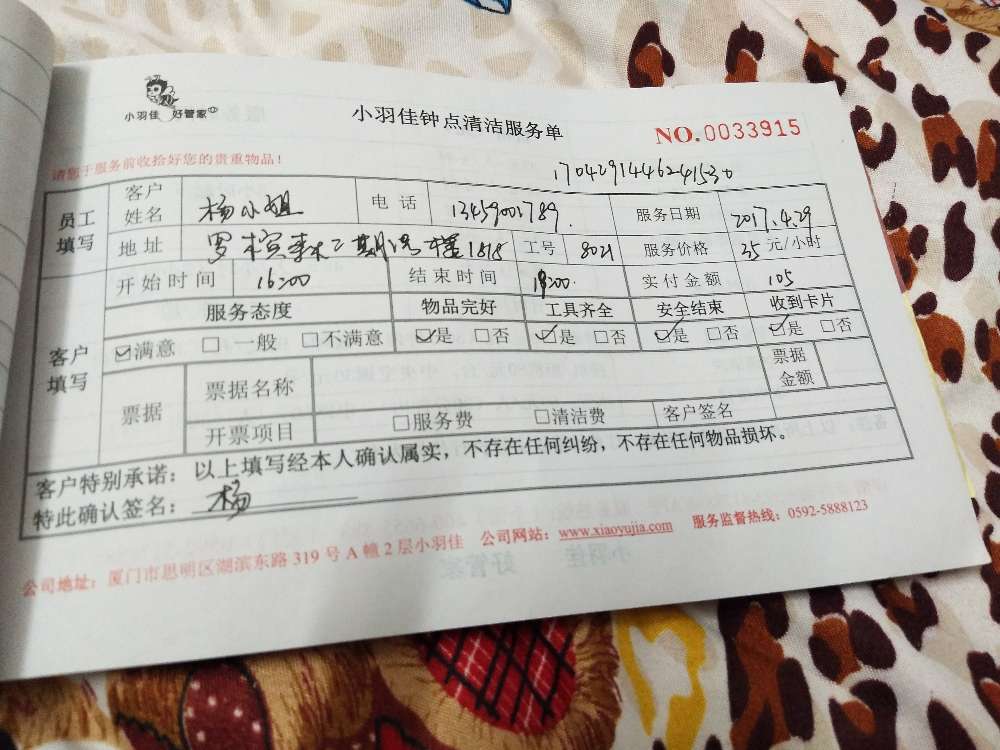 小羽佳 好管家
小羽佳钟点清洁服务单
NO.0033915
请您于服务前收拾好您的贵重物品!
员工填写 客户姓名 杨小姐 电话 13459001789 服务日期 2017.4.29
地址 二期 1818 工号 8021 服务价格 35 元/小时
客户填写 开始时间 16:00 结束时间 实付金额 105
服务态度 物品完好 工具齐全 安全结束 收到卡片
☑满意 □ 一般 □不满意 ☑是 □否 ☑是 □否 ☑是 □否 ☑是 □否
票据 票据名称 票据金额
开票项目 □服务费 □清洁费 客户签名
客户特别承诺:以上填写经本人确认属实,不存在任何纠纷,不存在任何物品损坏。
特此确认签名: 杨
公司地址:厦门市思明区湖滨东路 319 号 A 幢 2 层小羽佳 公司网站:www.xiaoyujia.com 服务监督热线:0592-5888123